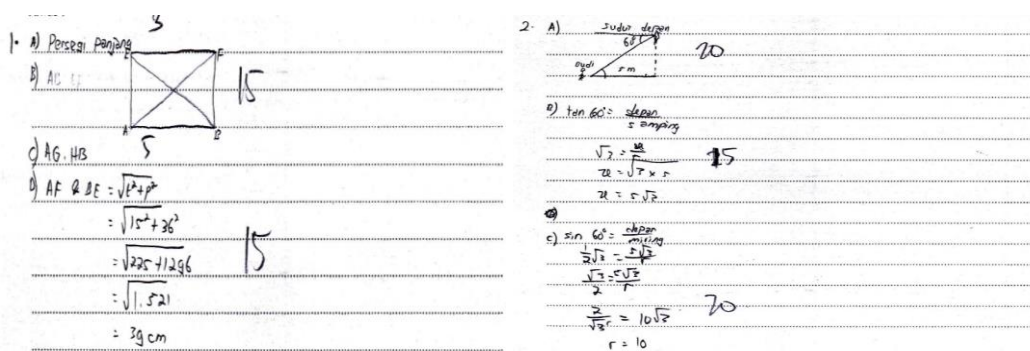 5
1. A) Persegi panjang
E F
B) AC
15
A B
5
C) AG. HB
D) AF & BE = √t²+p²
= √15²+36²
= √225+1296
15
= √1.521
= 39 cm
2. A) sudut depan
60°
20
budi
5 m
B) tan 60° = depan/samping
√3 = x/5
15
x = √3 × 5
x = 5√3
c) sin 60° = depan/miring
1/2√3 = 5√3/r
√3/2 = 5√3/r
20
= 10√3
r = 10